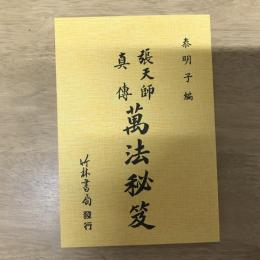 泰明子編
張天師
真傳
萬法秘笈
竹林書局
發行